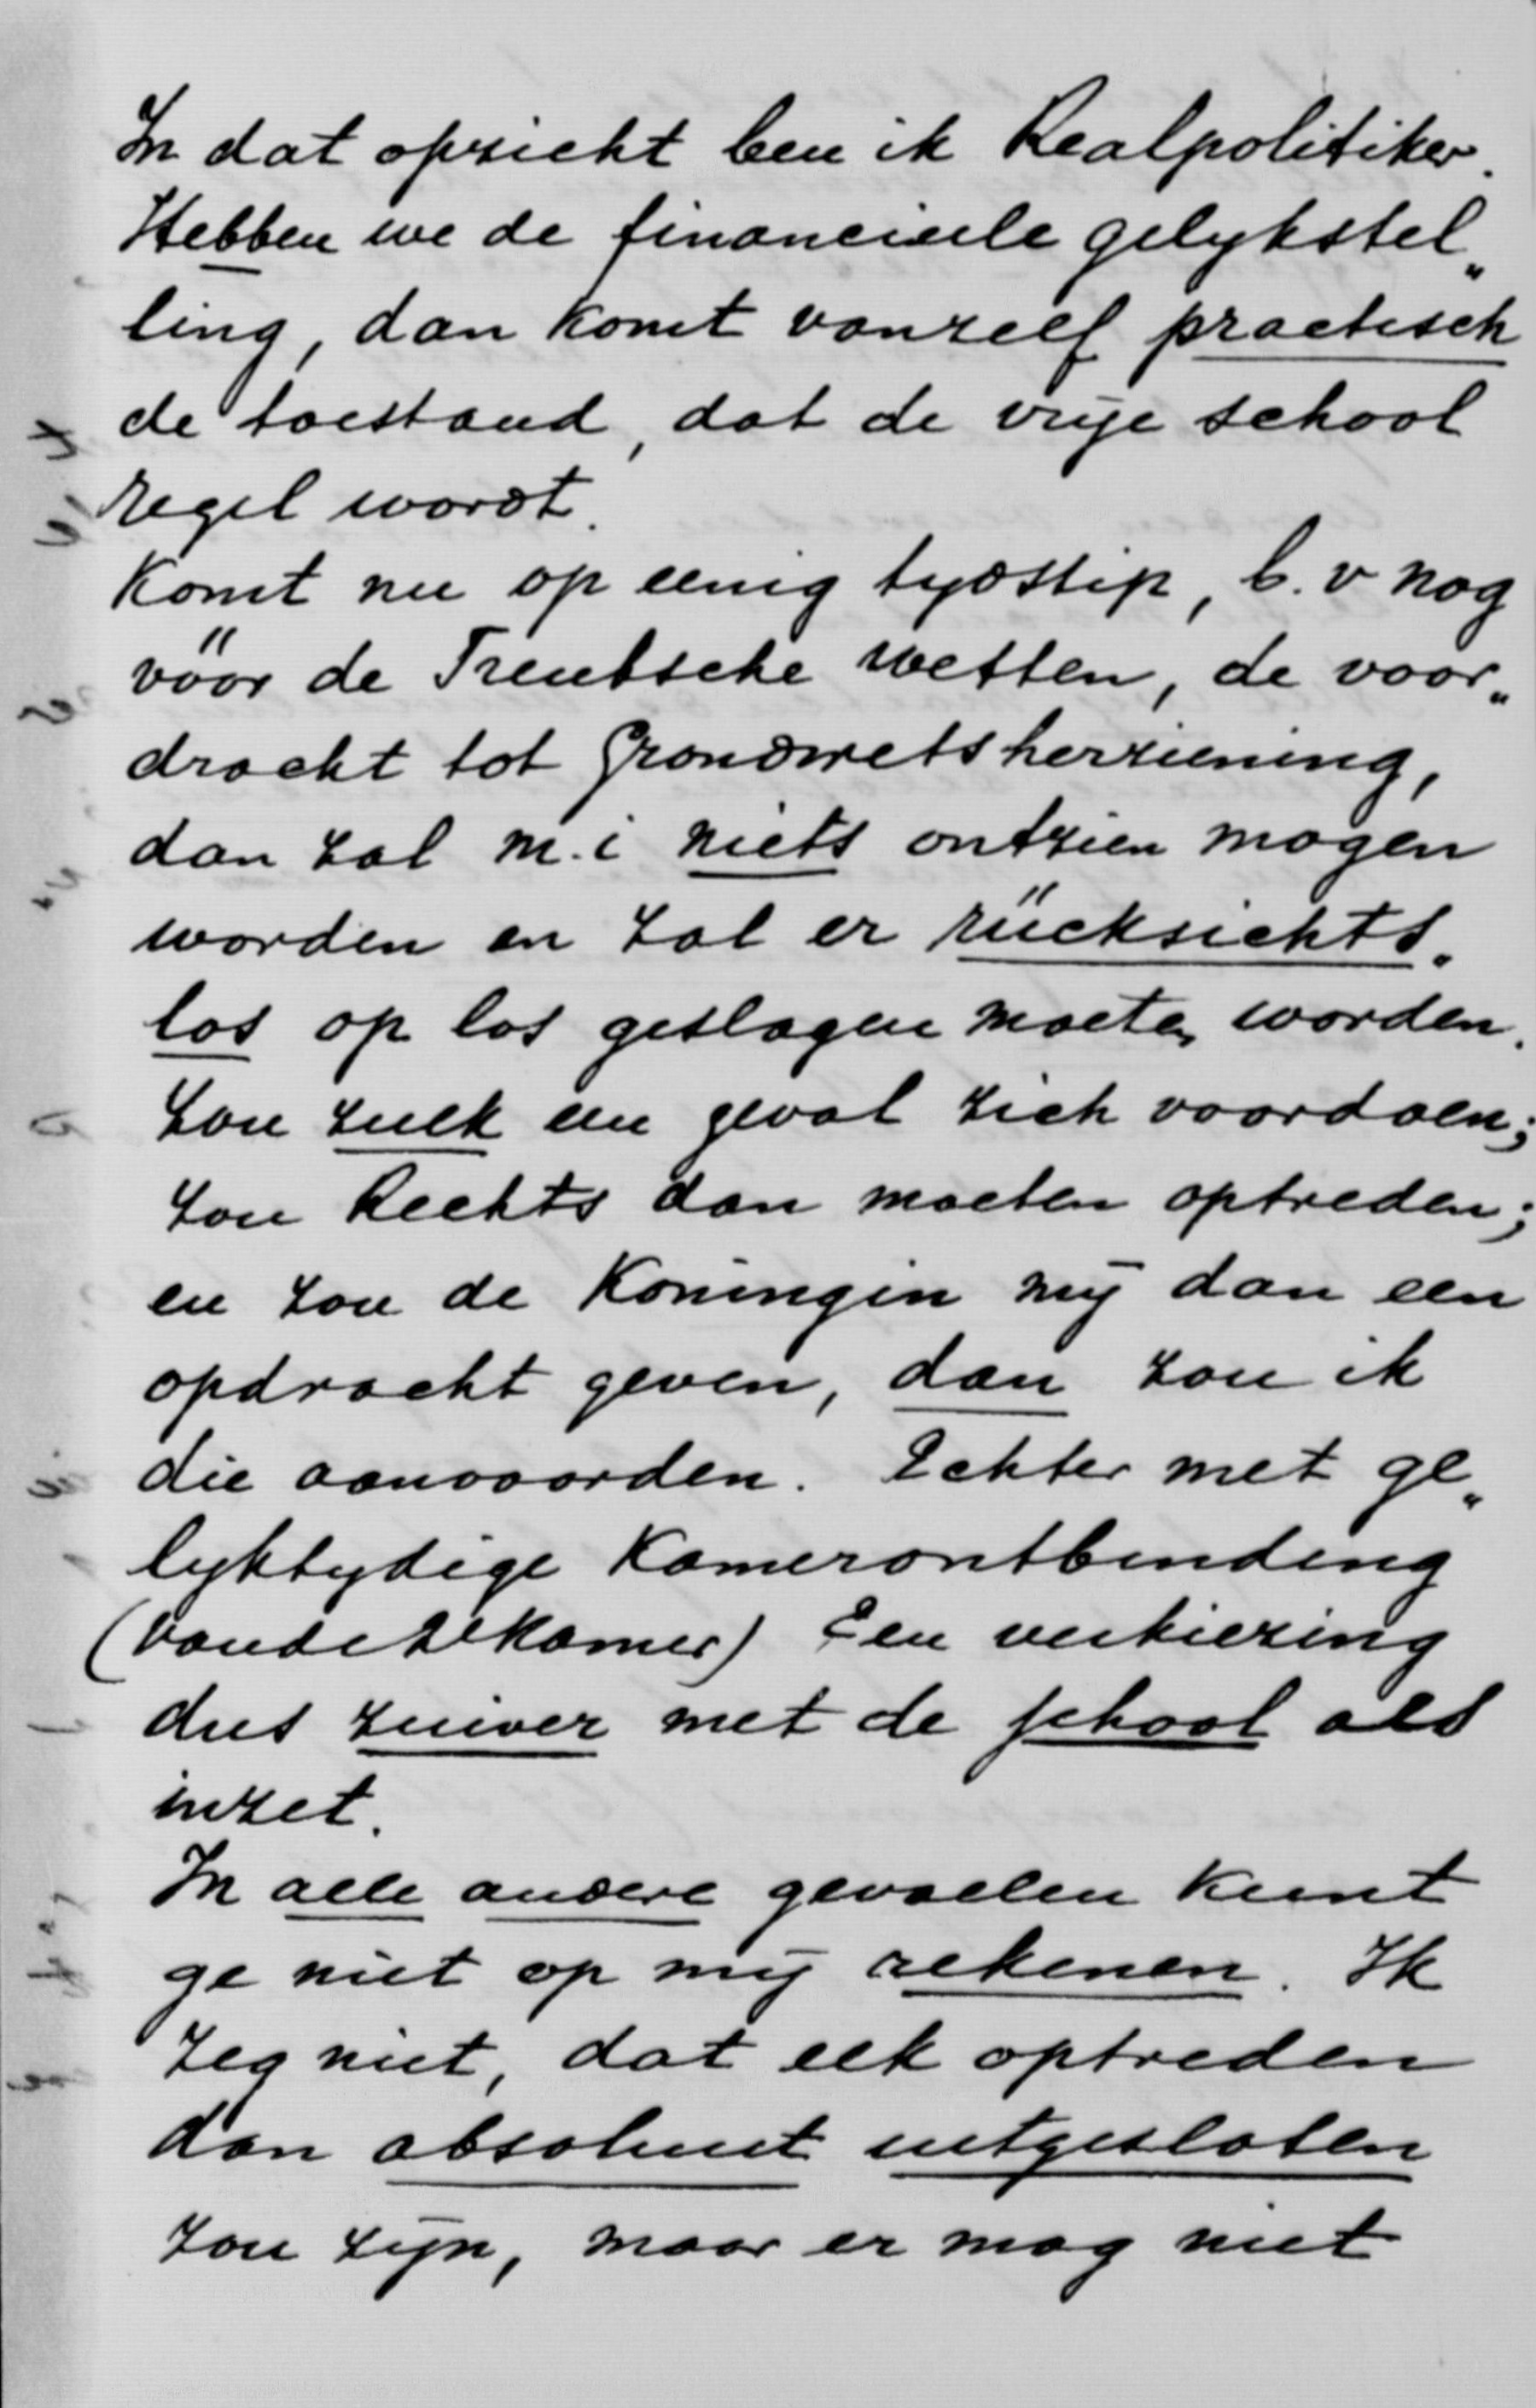 In dat opzicht ben ik Realpolitiker.
Hebben we de financieele gelykstel„
ling, dan komt vanzelf practisch
de toestand, dat de vrije school
regel wordt.
Komt nu op eenig tydstip, b.v nog
vóór de Treubsche wetten, de voor„
dracht tot Grondwetsherziening,
dan zal m.i niets ontzien mogen
worden en zal er rücksichts„
los op los geslagen moeten worden.
Zou zulk een geval zich voordoen;
zou Rechts dan moeten optreden;
en zou de Koningin mij dan een
opdracht geven, dan zou ik
die aanvaarden. Echter met ge„
lyktydige Kamerontbinding
(van de 2e Kamer) Een verkiezing
dus zuiver met de school als
inzet.
In alle andere gevallen kunt
ge niet op mij rekenen. Ik
zeg niet, dat elk optreden
dan absoluut uitgesloten
zou zijn, maar er mag niet